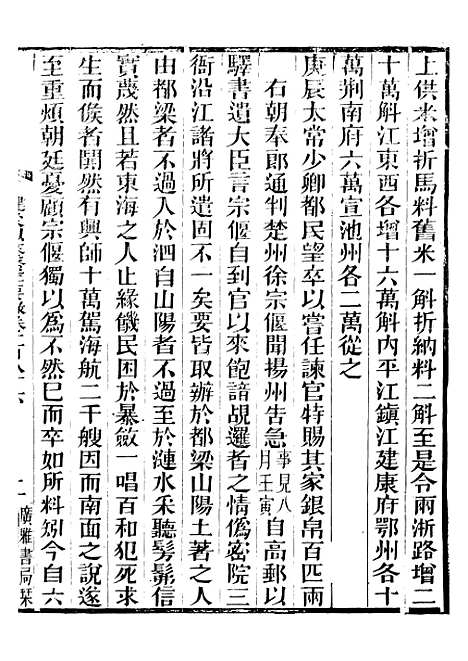 上供米增折馬料舊米一斛折納料二斛至是令兩浙路增二
十萬斛江東西各增十六萬斛內平江鎮江建康府鄂州各十
萬荆南府六萬宣池州各二萬從之
庚辰太常少卿都民望卒以嘗任諫官特賜其家銀帛百匹兩
右朝奉郎通判楚州徐宗偃聞揚州告急事見八月壬寅自高郵以
驛書遺大臣言宗偃自到官以來飽諳覘邏者之情僞密院三
衙沿江諸將所遣固不一矣要皆取辦於都梁山陽土著之人
由都梁者不過入於泗自山陽者不過至於漣水采聽髣髴信
實蔑然且若東海之人止緣饑民困於暴斂一唱百和犯死求
生而候者閧然有興師十萬駕海航二千艘因而南面之說遂
至重煩朝廷憂顧宗偃獨以爲不然已而卒如所料矧今自六
卷一百八十六
二
廣雅書局栞